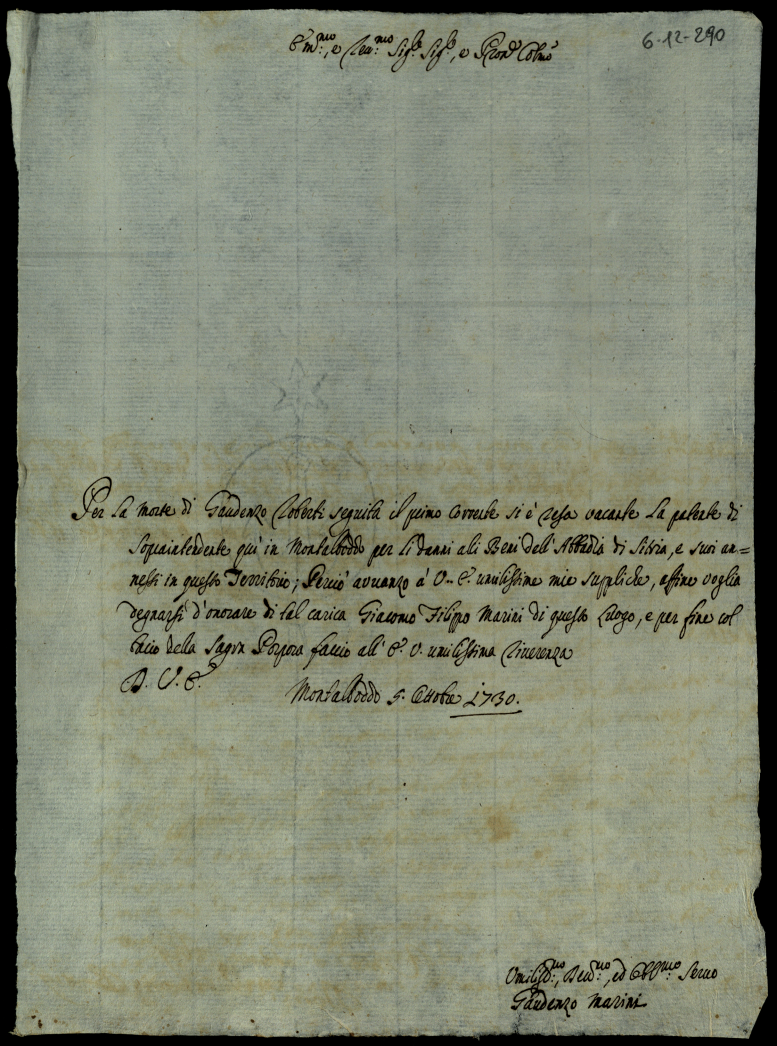 6-12-290
Em.mo, e Rev.mo Sig.e Sig.e, e Pron.e Colmo
Per La Morte di Gaudenzo Roberti seguita il primo Corrente si è resa vacante La patente di
Sopraintendente quì in Montalboddo per li danni ali Beni dell'Abbadia di Sitria, e suoi an=
nessi in questo Territorio; Perciò avvanzo à V.ra E. umilissime mie suppliche, affine voglia
degnarsi d'onorare di tal carica Giacomo Filippo Marini di questo Luogo, e per fine col
bacio della Sagra Porpora faccio all'E. V. umilissima Riverenza
D. V. E.
Montalboddo 5. Ottobre 1730.
Umiliss.mo, Dev.mo, ed Obb.mo Servo
Gaudenzo Marini